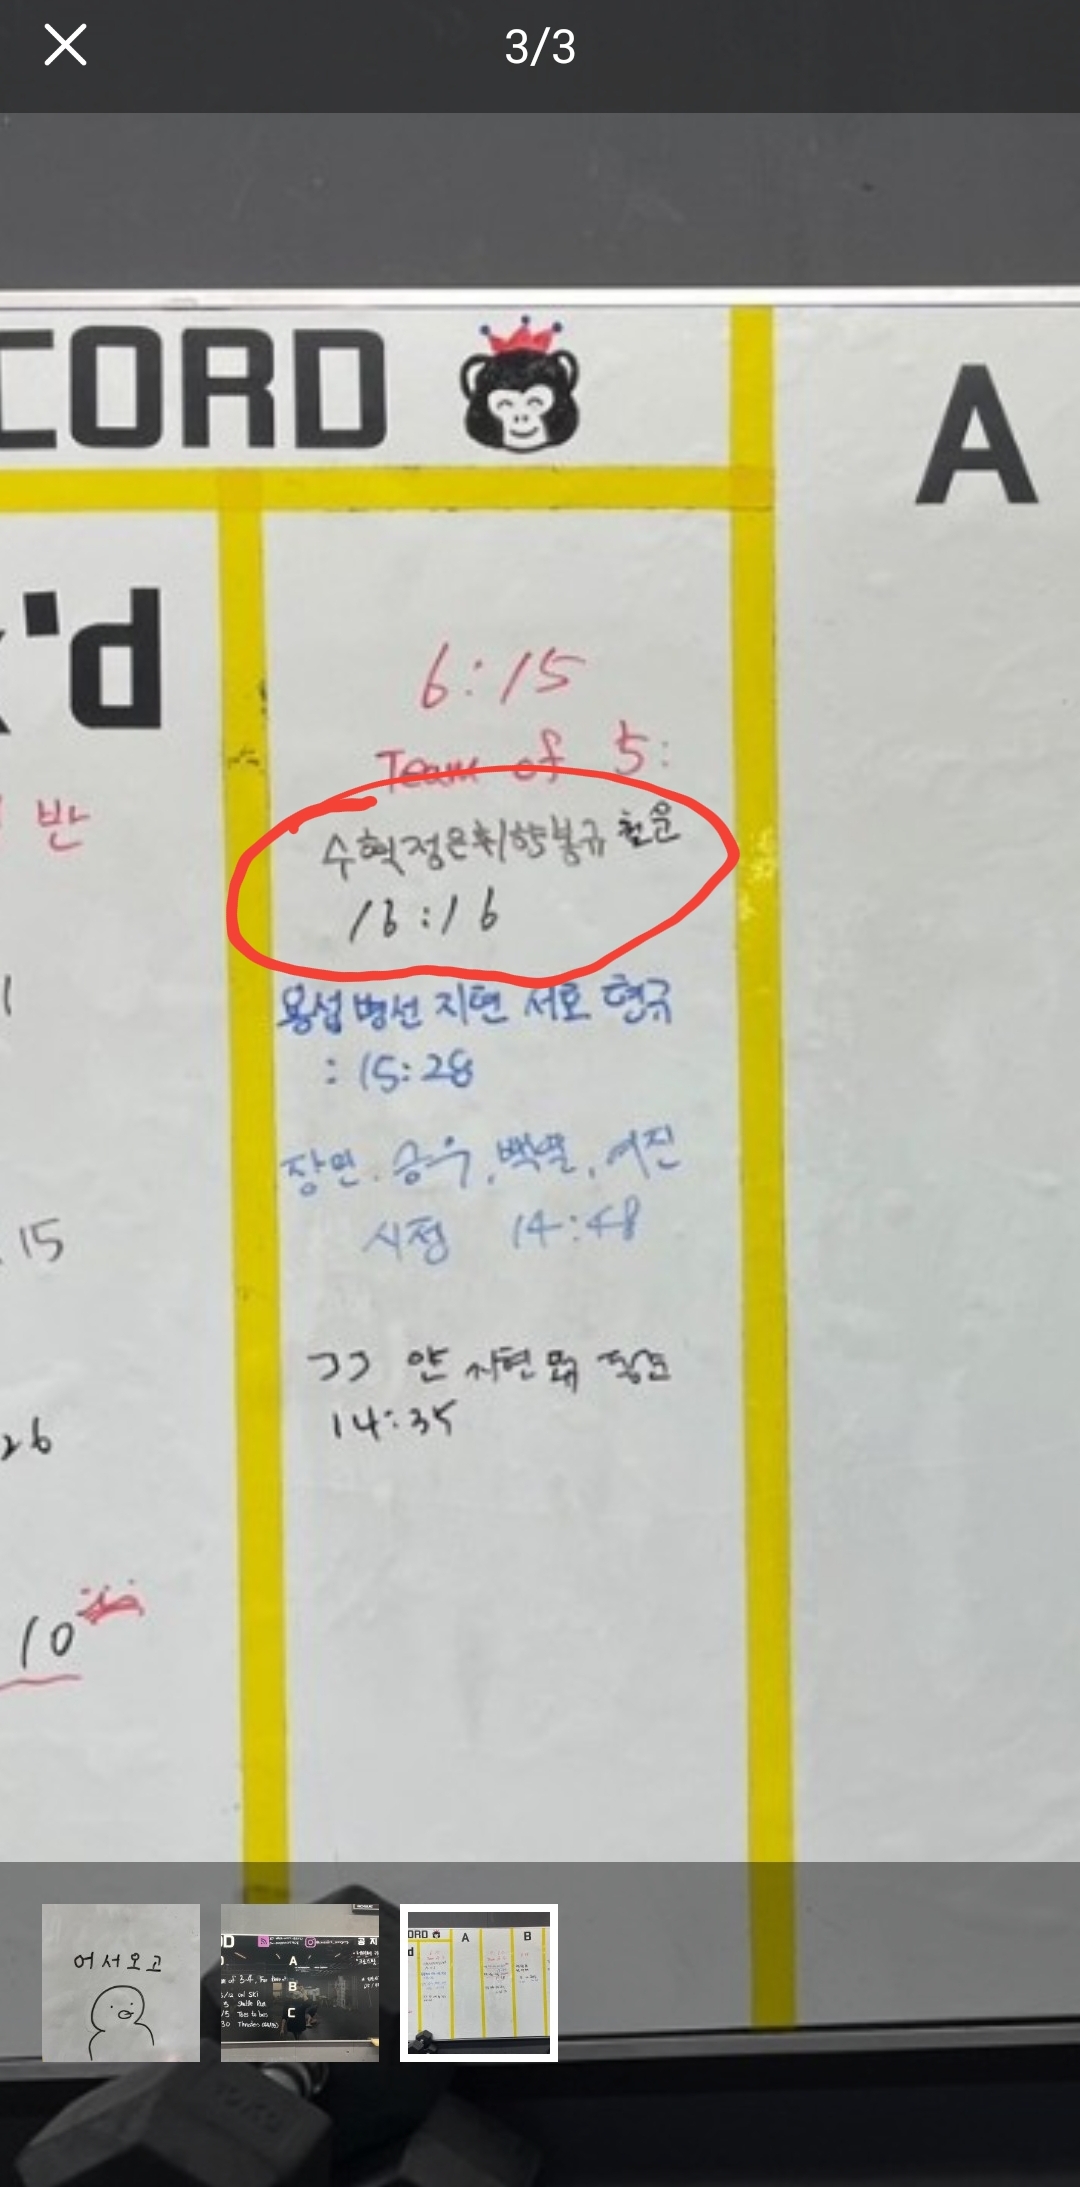 3/3
CORD
A
'd
6:15
Team of 5:
반
수혁정은취향봉규 철운
16:16
용섭 병선 지현 서호 현규
: 15:28
15
장민. 승우, 백열, 여진
시정 14:48
ㄱㄱ 얀 시현
14:35
26
10
어서오고
A
B
C
A
B